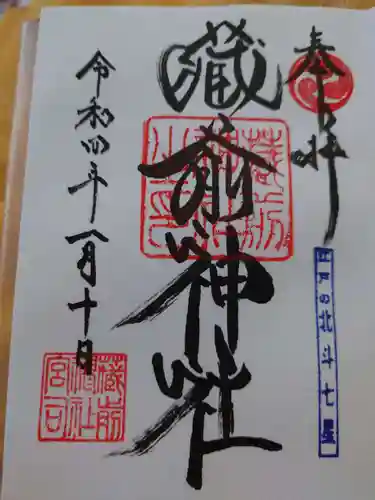 奉拝
江戸の北斗七星
蔵前神社
蔵前神社之印
令和四年一月十日
蔵前神社宮司